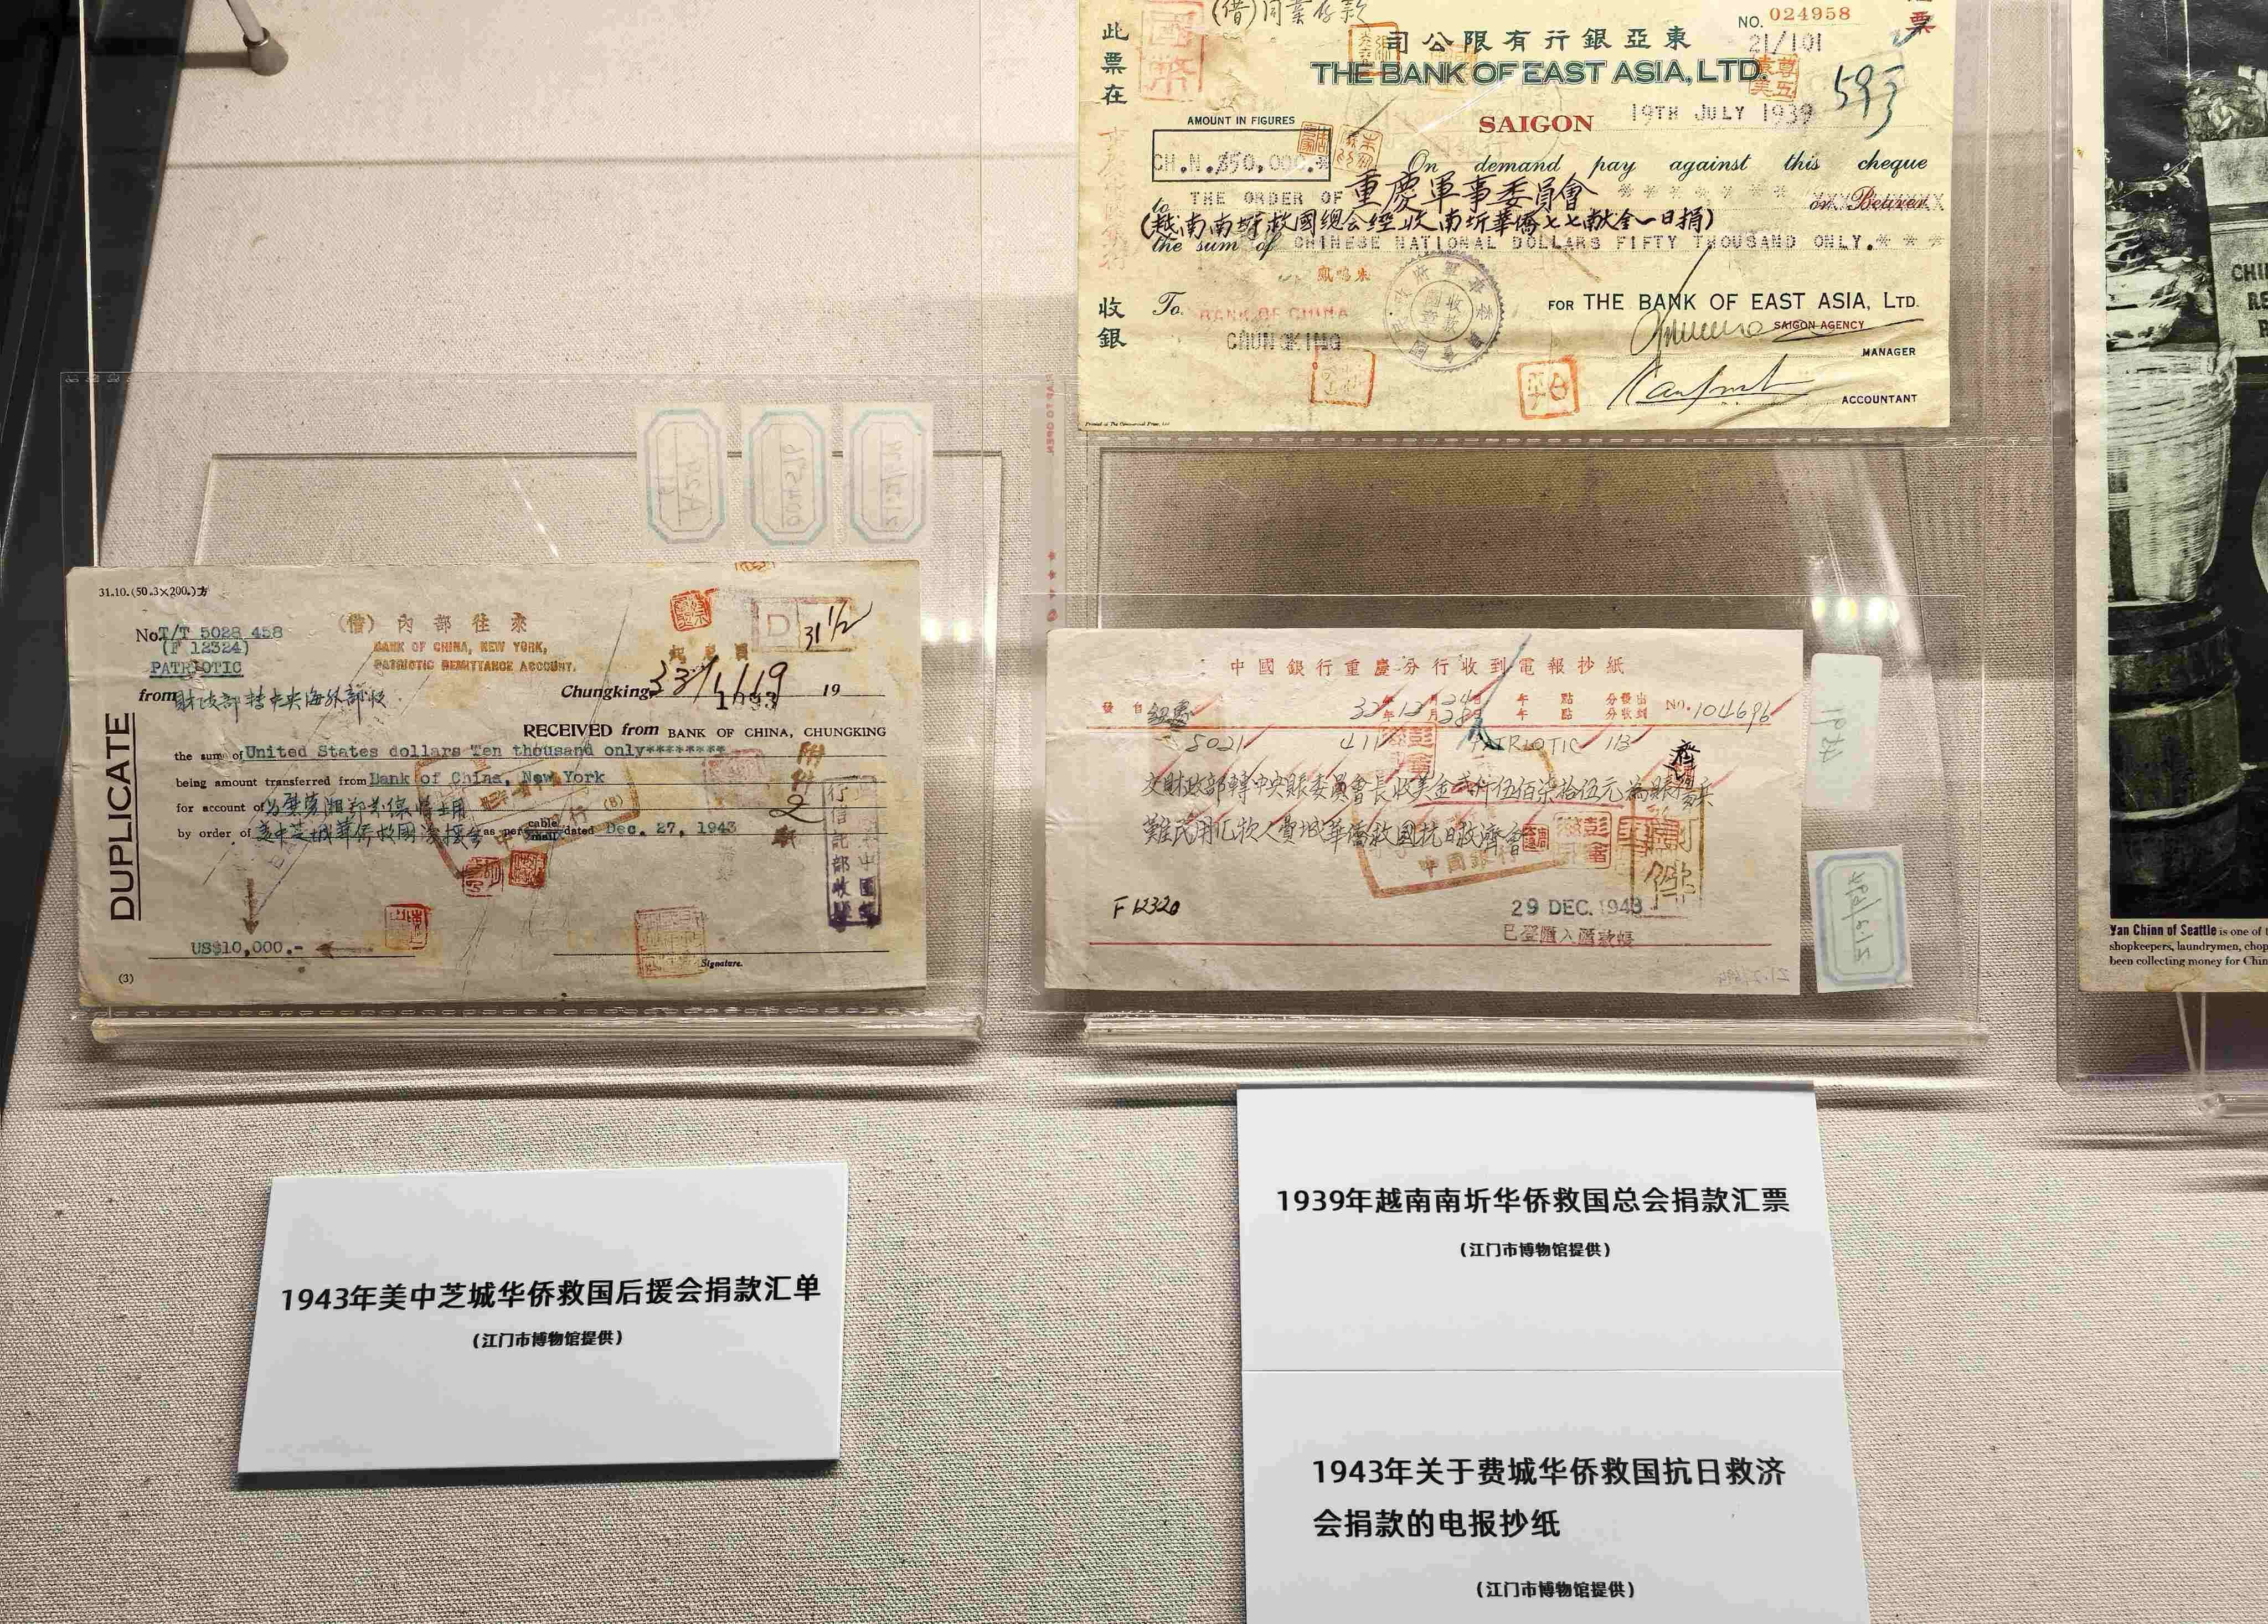 (借)同業存款
此票在
收銀
NO. 024958
21/101
司公限有行銀亞東
THE BANK OF EAST ASIA, LTD.
593
SAIGON 19TH JULY 1939
AMOUNT IN FIGURES
CH.N.$50,000.*
On demand pay against this cheque
to THE ORDER OF 重慶軍事委員會 * * * * * * * * or Bearer
(越南南圻救國總会經收南圻華僑七七献金一日捐)
the sum of CHINESE NATIONAL DOLLARS FIFTY THOUSAND ONLY. * * *
To. BANK OF CHINA
CHUNGKING
FOR THE BANK OF EAST ASIA, LTD.
SAIGON AGENCY
MANAGER
ACCOUNTANT
31.10.(50.3×200.)方
No. T/T 5028 458
(F 12324)
PATRIOTIC
(借) 內部往來
BANK OF CHINA, NEW YORK,
PATRIOTIC REMITTANCE ACCOUNT.
D 31 1/2
from 財政部轉中央海外部收
Chungking, 33/1/19 19
DUPLICATE
RECEIVED from BANK OF CHINA, CHUNGKING
the sum of United States dollars Ten thousand only********
being amount transferred from Bank of China, New York
for account of
by order of 美中芝城華僑救國後援会 as per cable mail dated Dec. 27, 1943
US$10,000.-
Signature.
(3)
中國銀行重慶分行收到電報抄紙
發自紐約 32年12月24日 午 點 分發出
年 月28日 午 點 分收到 No. 104696
5021 411 PATRIOTIC 113
交財政部轉中央賑委員會長收美金貳仟伍佰柒拾伍元為賑濟兵
難民用汇款人費城華僑救國抗日救濟會
中國銀行
F 12320
29 DEC. 1943
已登匯入匯款帳
Yan Chinn of Seattle is one of
shopkeepers, laundrymen, chop
been collecting money for Chin
1943年美中芝城华侨救国后援会捐款汇单
(江门市博物馆提供)
1939年越南南圻华侨救国总会捐款汇票
(江门市博物馆提供)
1943年关于费城华侨救国抗日救济
会捐款的电报抄纸
(江门市博物馆提供)